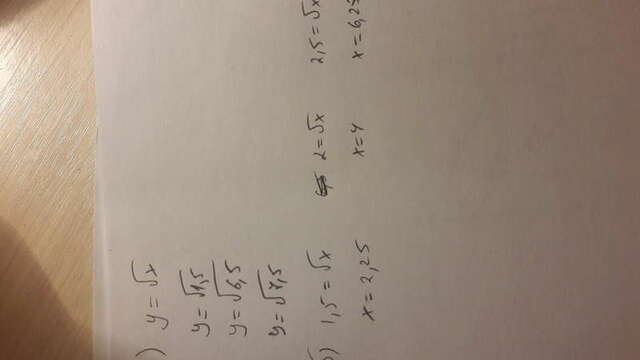 ) y = √x
y = √1,5
y = √6,5
y = √7,5
б) 1,5 = √x 2 = √x 2,5 = √x
x = 2,25 x = 4 x = 6,25